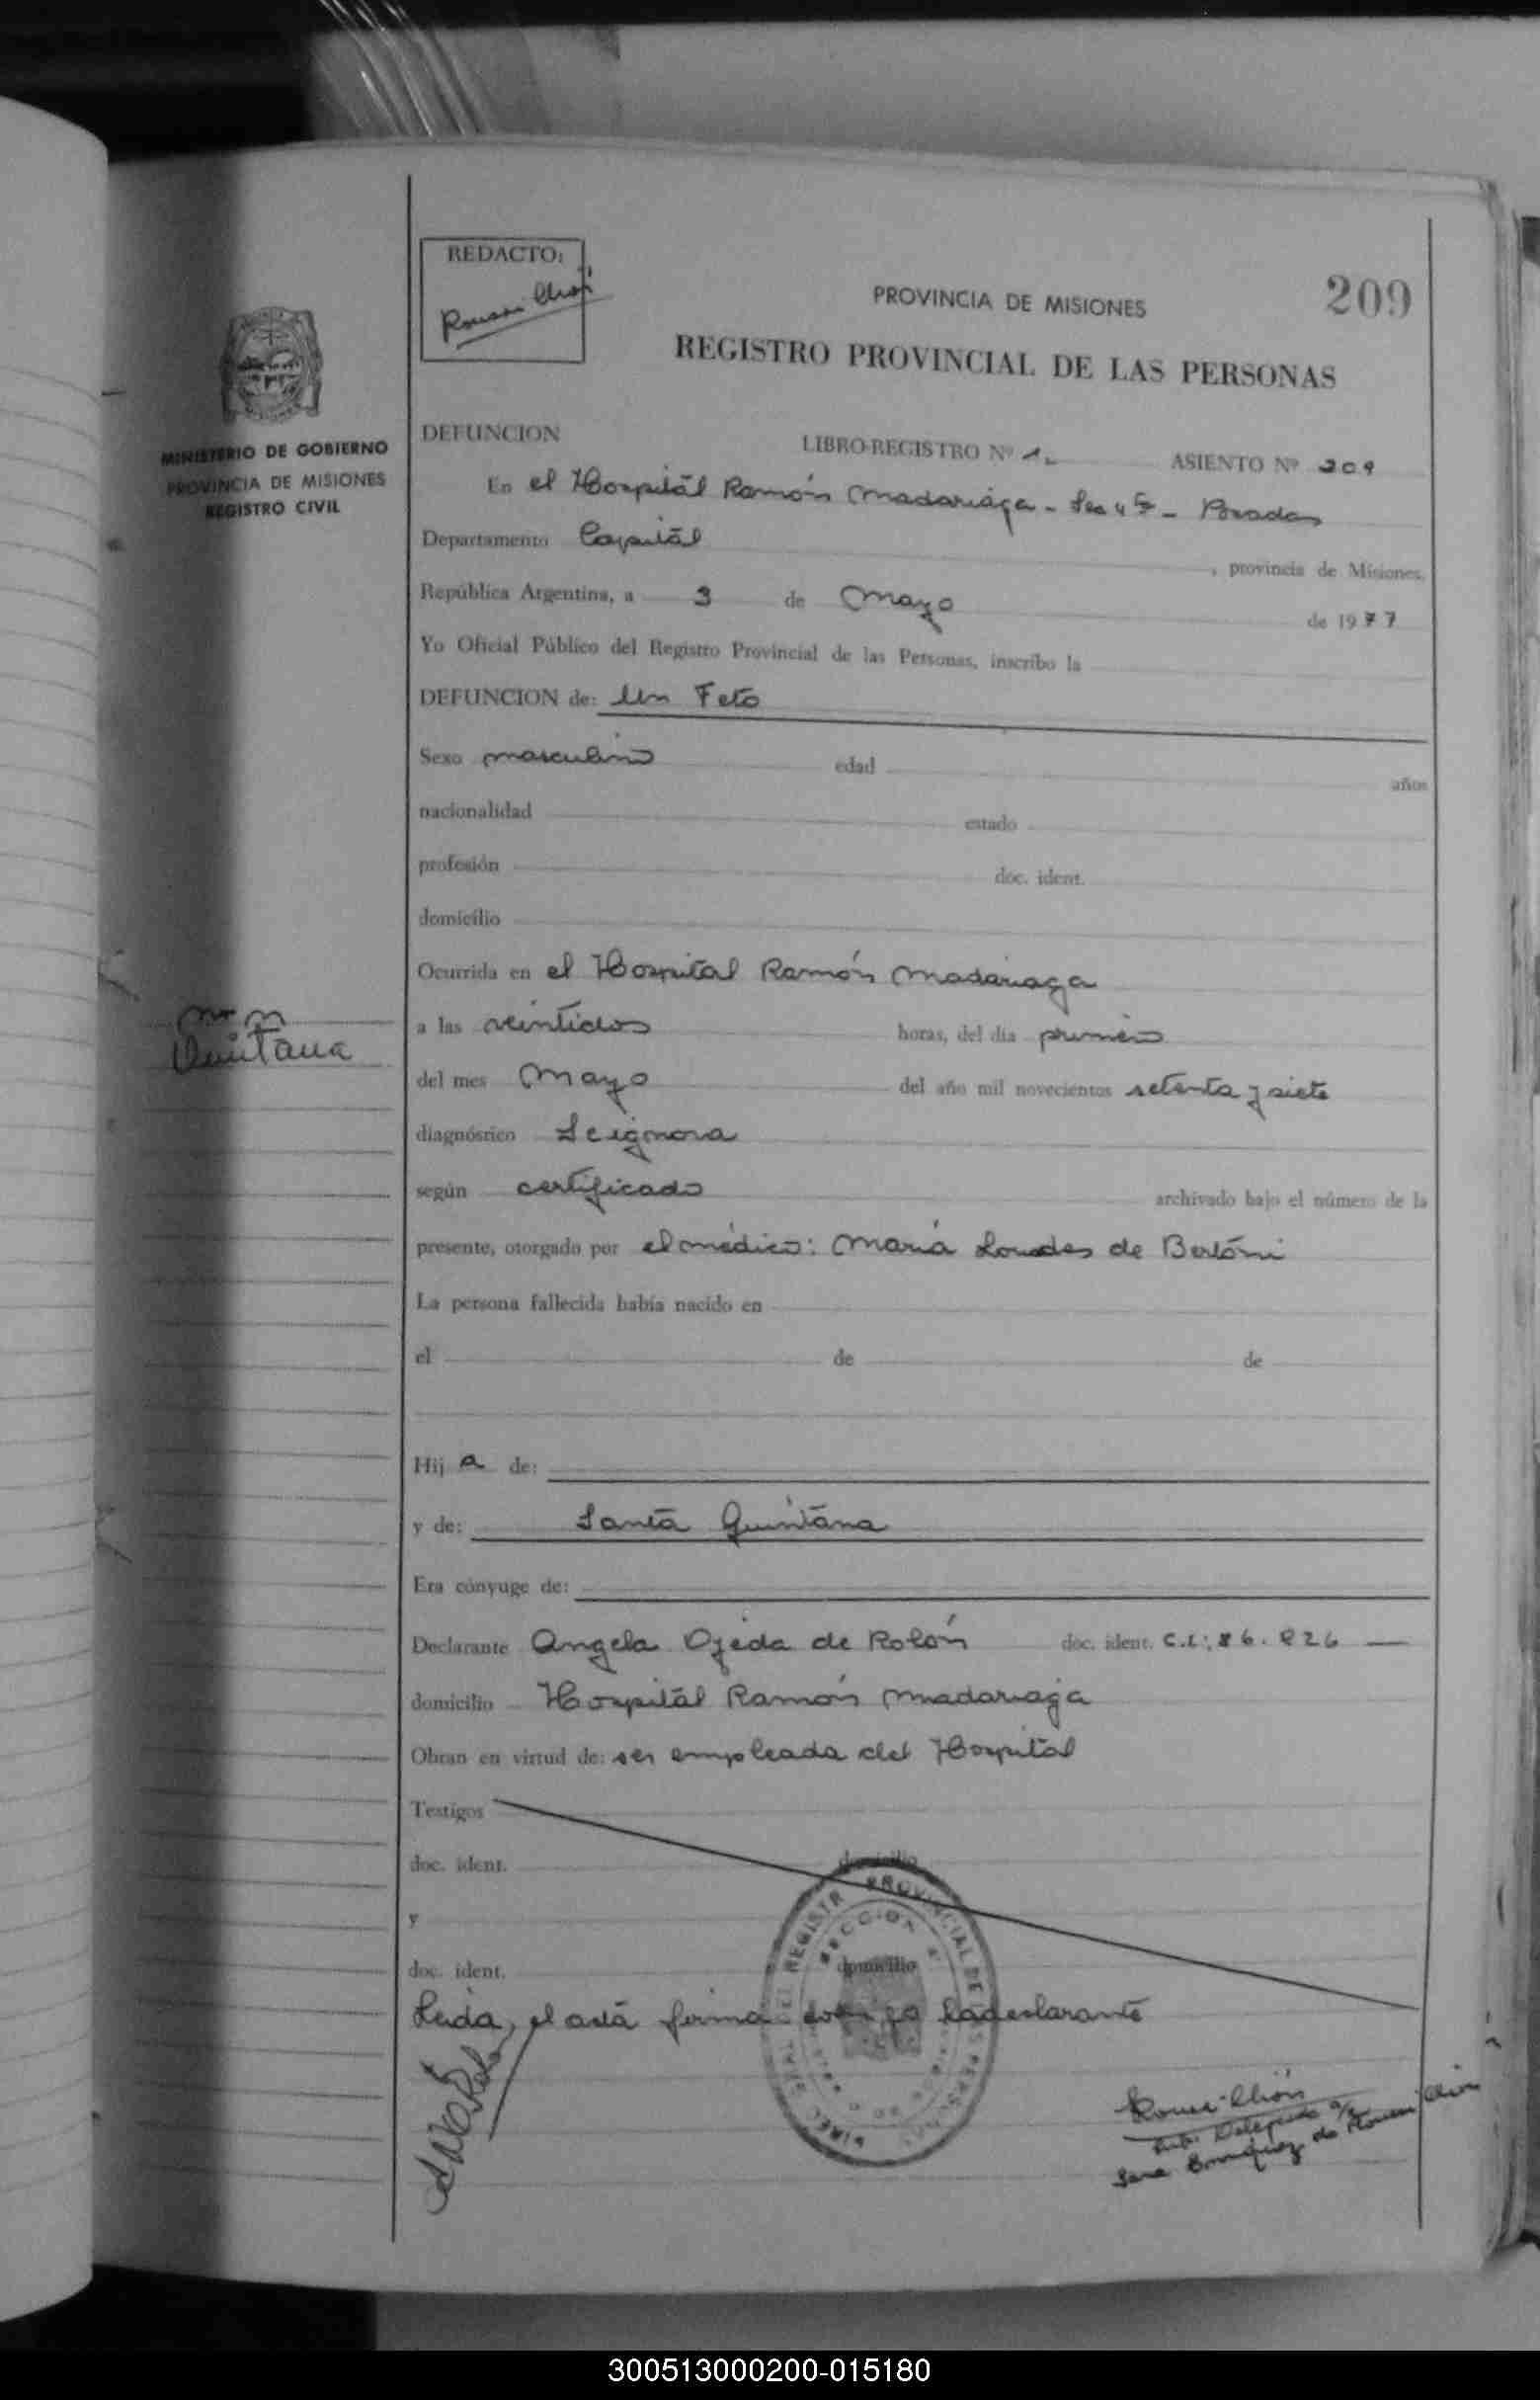 REDACTO:
209
PROVINCIA DE MISIONES
REGISTRO PROVINCIAL DE LAS PERSONAS
MINISTERIO DE GOBIERNO
PROVINCIA DE MISIONES
REGISTRO CIVIL
DEFUNCION LIBRO-REGISTRO Nº 1 ASIENTO Nº 209
En el Hospitál Ramón Madariága - Posadas
Departamento Capitál , provincia de Misiones,
República Argentina, a 3 de Mayo de 1977
Yo Oficial Público del Registro Provincial de las Personas, inscribo la
DEFUNCION de: Un Feto
Sexo masculino edad años
nacionalidad estado
profesión doc. ident.
domicilio
Ocurrida en el Hospital Ramón Madariaga
Quintana
a las veintidos horas, del día primero
del mes Mayo del año mil novecientos setenta y siete
diagnóstico Se ignora
según certificado archivado bajo el número de la
presente, otorgado por el médico: María Lourdes de Bertóni
La persona fallecida había nacido en
el de de
Hij a de:
y de: Santa Quintana
Era cónyuge de:
Declarante Angela Ojeda de Rolón doc. ident. C.I: 86.826
domicilio Hospitál Ramón Madariaga
Obran en virtud de: ser empleada del Hospital
Testigos
doc. ident. domicilio
y
doc. ident. domicilio
Leida, el acta firma la declarante
REGISTR PROVINCIAL DE
SECCION
300513000200-015180